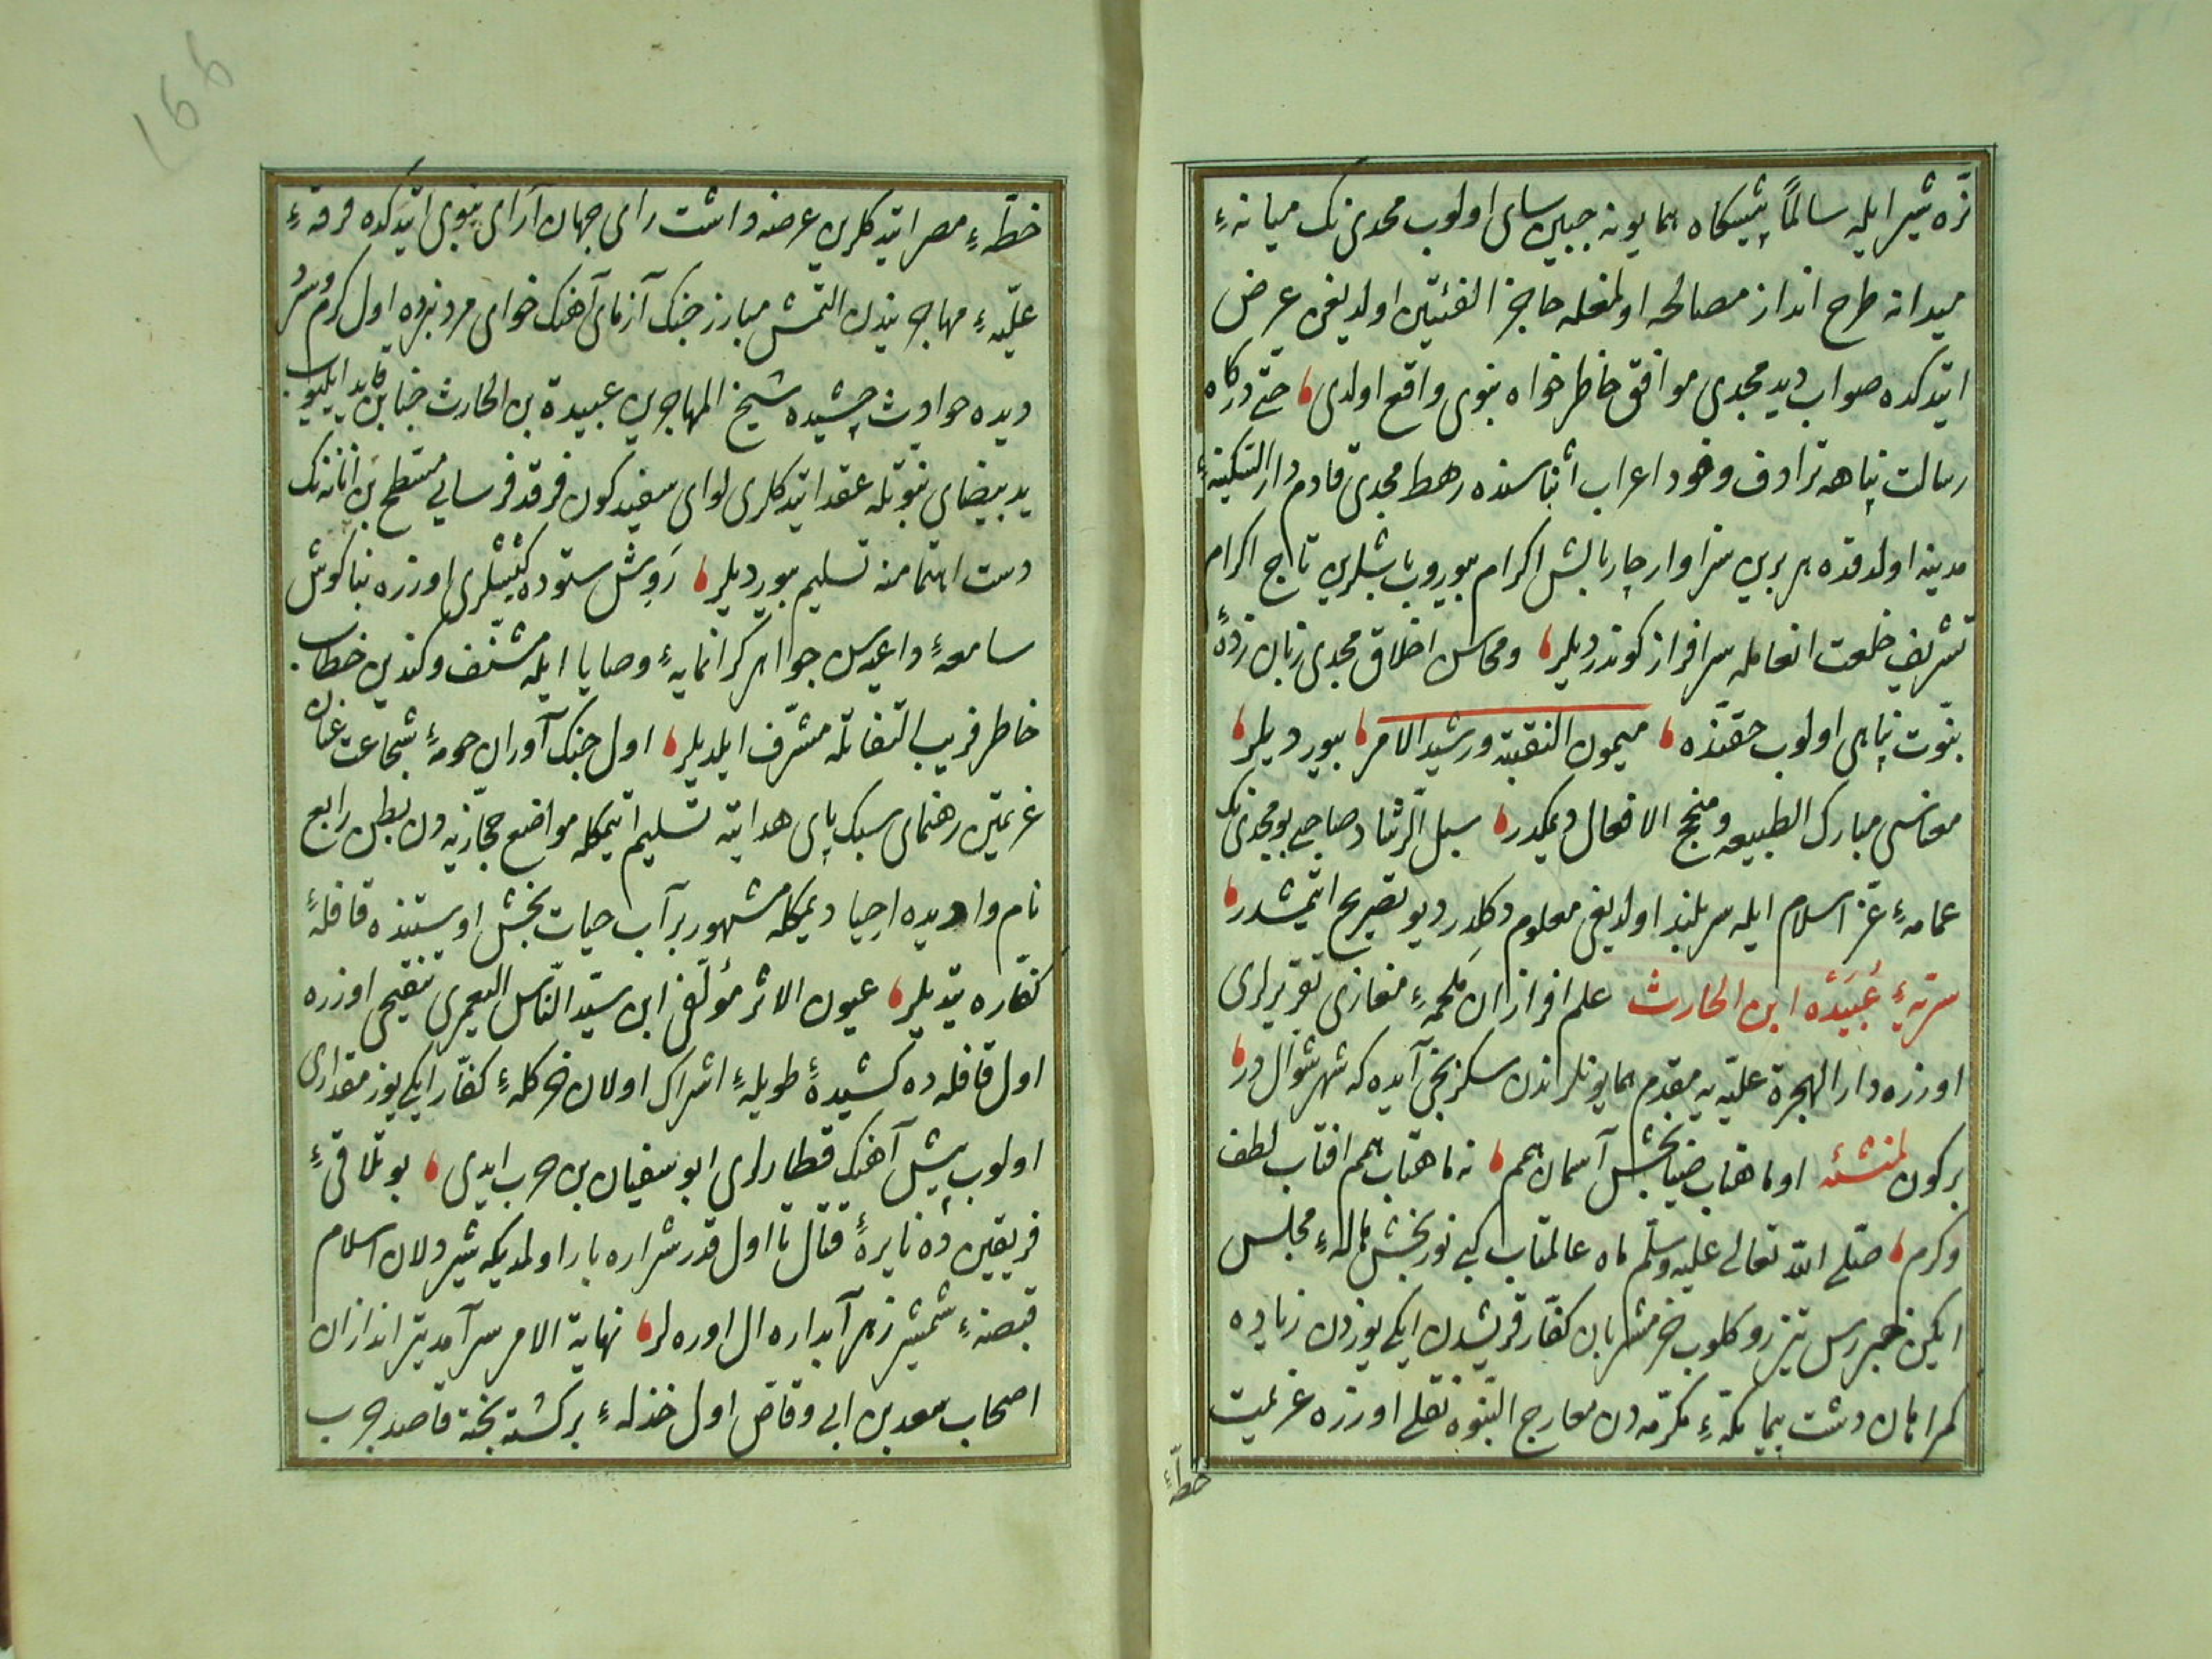 نره شیر ایله سالماً پیشکاه همایونه جبین سای اولوب مجدی نک میانهٔ
میدانه طرح انداز مصالحه اولمغله حاجز الفئتین اولدیغی عرض
ایتدکده صواب دید مجدی موافق خاطر خواه نبوی واقع اولدی حتی درکاه
رسالت پناهه ترادف وفود اعراب اثناسنده رهط مجدی قادم دار السکینهٔ
مدینه اولدقده هر برین سزاوار چار بالش اکرام بیوروب باشلرین تاج اکرام
تشریف خلعت انعامله سرافراز کوندردیلر ومحاسن اخلاق مجدی زبان زدهٔ
نبوت پناهی اولوب حقنده میمون النقیبه ورشید الامر بیوردیلر
معناسی مبارک الطبیعه ومنجح الافعال دیمکدر سبل الرشاد صاحبی بو مجدی نک
عمامهٔ عز اسلام ایله سربلند اولدیغی معلوم دکلدر دیو تصریح ایتمشدر
سریهٔ عُبَیْدَه ابن الحارث علم افرازان ملحمهٔ مغازی تقریرلری
اوزره دار الهجرة علیه یه مقدم همایونلرندن سکزنجی آیده که شهر شوال در
برکون لمنشئه او ماهتاب ضیابخش آسمان همم نه ماهتاب همم افتاب لطف
وکرم صلی الله تعالی علیه وسلم ماه عالمتاب کبی نوربخش هالهٔ مجلس
ایکین خبررس تیزرو کلوب خرمشربان کفار قریشدن ایکی یوزدن زیاده
کمراهان دشت پیما مکهٔ مکرمه دن معارج النبوه نقلی اوزره عزیمت
خطهٔ
خطهٔ مصر ایتدکلرین عرضه داشت رای جهان آرای نبوی ایتدکده فرقهٔ
علیهٔ مهاجریندن التمش مبارز جنک آزمای آهنک خوای مرد نبرده اول کرم وسرد
دیده حوادث چشیده شیخ المهاجرین عبیدة بن الحارث جنابن قاید ایلیوب
ید بیضای نبوتله عقد ایتدکلری لوای سفید کون فرقد فرسایی مسطح بن اثاثه نک
دست اهتمامنه تسلیم بیوردیلر رَوِش ستوده کنشلری اوزره بناکوش
سامعهٔ داعیه سن جواهر کرانمایهٔ وصایا ایله مشنف وکندین خطاب
خاطر فریب التفاتله مشرف ایلدیلر اول جنک آوران حومهٔ شجاعت عنان
عزیمتین رهنمای سبک پای هدایته تسلیم ایتمکله مواضع حجازیه دن بطن رابع
نام وادیده احیا دیمکله مشهور بر آب حیات بخش اوستنده قافلهٔ
کفاره یتدیلر عیون الاثر مؤلفی ابن سید الناس الیعمری تنقیحی اوزره
اول قافله ده کشیدهٔ طویلهٔ اشراک اولان خر کلهٔ کفار ایکی یوز مقداری
اولوب پیش آهنک قطارلری ابو سفیان بن حرب ایدی بو تلاقیٔ
فریقین ده نایرهٔ قتال تا اول قدر شراره بار اولمدیکه شیر دلان اسلام
قبضهٔ شمشیر زهر آبداره ال اوره لر نهایة الامر سرآمد تیر اندازان
اصحاب سعد بن ابی وقاص اول خذلهٔ برکشته بخته قاصد حرب